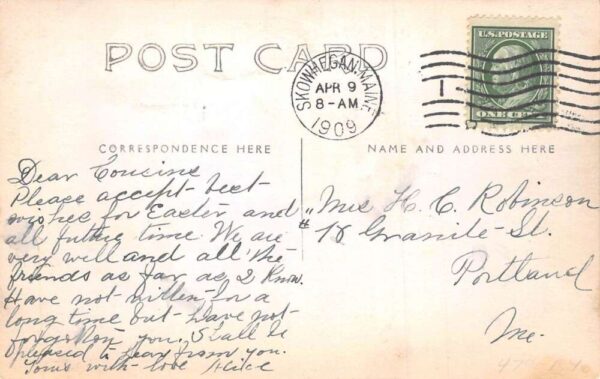 POST CARD
SKOWHEGAN, MAINE
APR 9
8-AM
1909
1
U.S. POSTAGE
ONE CENT
CORRESPONDENCE HERE
NAME AND ADDRESS HERE
Dear Cousins
Please accept best
wishes for Easter and
all future time. We are
very well and all the
friends as far as I know.
Have not written for a
long time but have not
forgotton you. Shall be
pleased to hear from you.
Yours with love Alice
Mrs H. C. Robinson
" 18 Granite St.
Portland
Me.